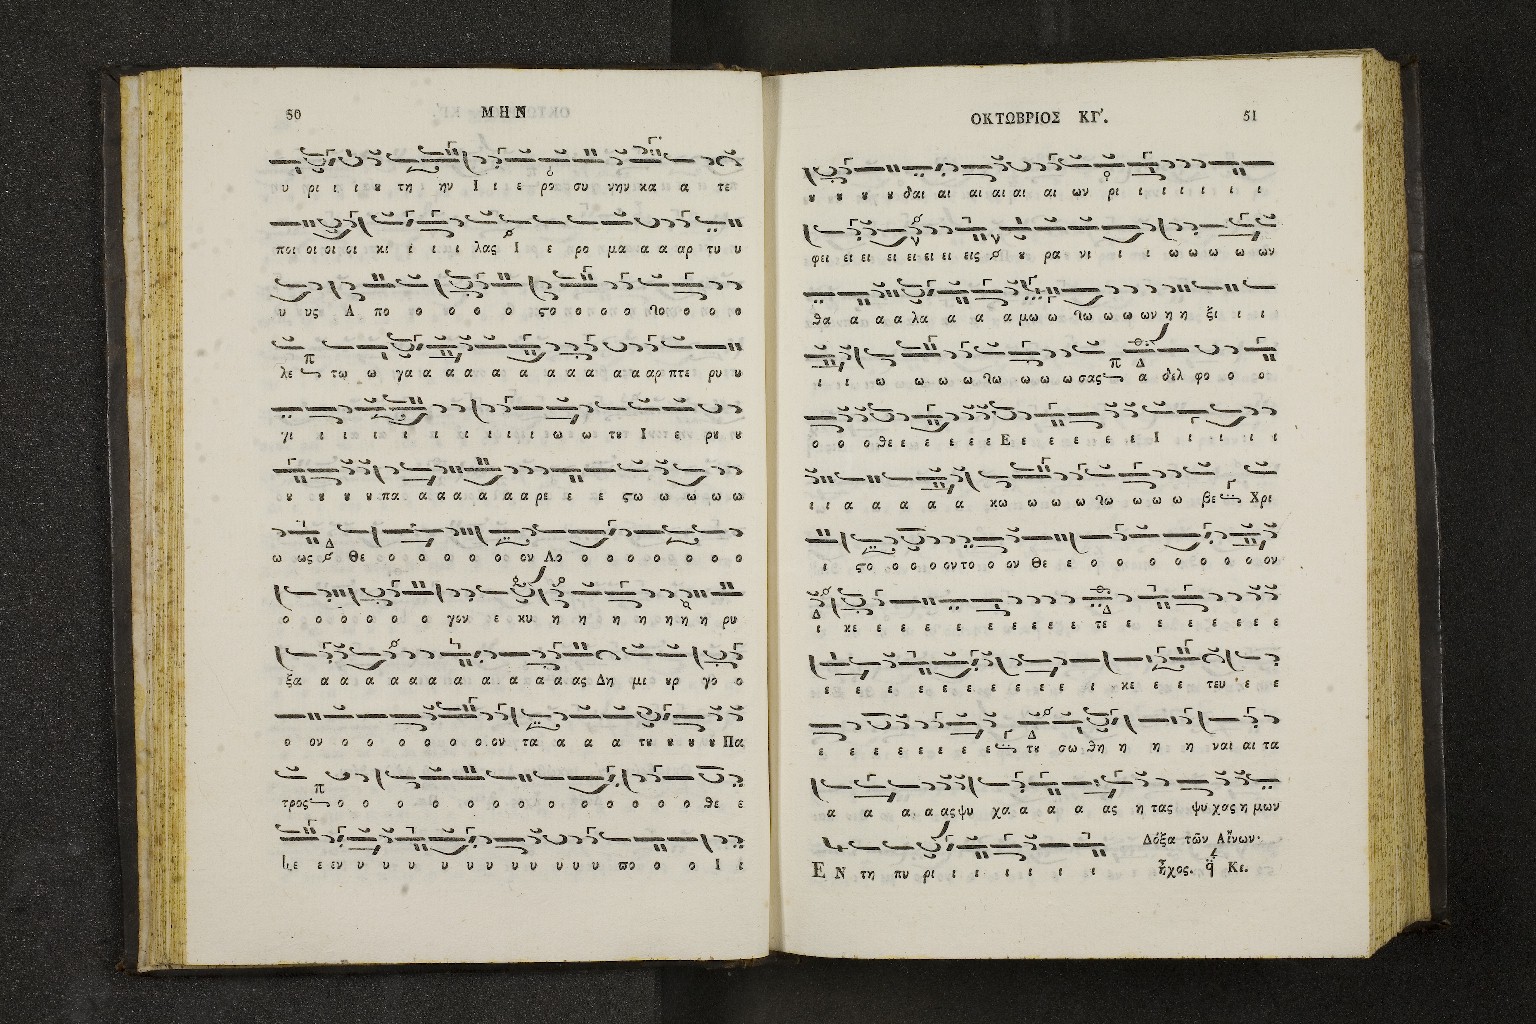 50 ΜΗΝ
υ ρι ι ι ȣ τη ι ην Ι ι ε ρο συ νην κα α τε
ποι οι οι οι κι ι ι ι λας Ι ε ρο μα α α αρ τυ υ
υ υς Α πο ο ο ο ο ςο ο ο ο ο λο ο ο ο
λε τω ω γα α α α α α α α α α α αρ πτε ρυ υ
γι ι ι ι ι ι ι ι ι ι ι ω ω τȣ Ι ε ρȣ ȣ
ȣ ȣ ȣ ȣ πα α α α α α α ρε ε ε ςω ω ω ω ω
ω ως Θε ο ο ο ο ο ο ον Λο ο ο ο ο ο ο ο
ο ο ο ο ο ο ο γον ε κυ η η η η η η η ρυ
ξα α α α α α α α α α α α α ας Δη μι ȣρ γο ο
ο ον ο ο ο ο ο ο ο ον τα α α α τȣ ȣ ȣ ȣ Πα
τρος ο ο ο ο ο ο ο ο ο ο ο ο ο θε ε
θε ε εν υ υ υ υ υ υ υ υ υ υ υ ϖο ο ο Ι ι
ΟΚΤΩΒΡΙΟΣ ΚΓ'. 51
ȣ ȣ ȣ ȣ δαι αι αι αι αι αι ων ρι ι ι ι ι ι ι
φει ει ει ει ει ει ει εις ȣ ρα νι ι ι ω ω ω ω ων
θα α α α λα α α α μω ω λω ω ω ω ων η η ξι ι ι
ι ι ω ω ω ω λω ω ω ω σας α δελ φο ο ο
ο ο ο θε ε ε ε ε ε Ε ε ε ε ε ε ε Ι ι ι ι ι
ι ι α α α α α κω ω ω ω λω ω ω ω βε Χρι
ι ςο ο ο ο ον το ο ον Θε ε ο ο ο ο ο ο ο ον
ι κε ε ε ε ε ε ε ε ε ε τε ε ε ε ε ε ε ε
ε ε ε ε ε ε ε ε ε ε ε ι κε ε ε τευ ε ε
ε ε ε ε ε ε ε ε τȣ σω θη η η η ναι αι τα
α α α α ας ψυ χα α α α α ας η τας ψυ χας η μων
Δόξα τῶν Αἴνων·
ΕΝ τη πυ ρι ι ι ι ι ι ι ἦχος. ἢ Κε.